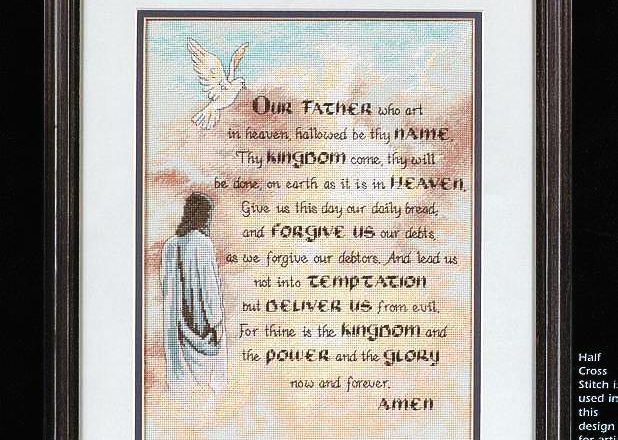 OUR FATHER who art
in heaven, hallowed be thy NAME.
Thy KINGDOM come, thy will
be done, on earth as it is in HEAVEN.
Give us this day our daily bread,
and FORGIVE US our debts,
as we forgive our debtors. And lead us
not into TEMPTATION
but DELIVER US from evil.
For thine is the KINGDOM and
the POWER and the GLORY
now and forever.
AMEN
Half
Cross
Stitch i
used in
this
design
for arti